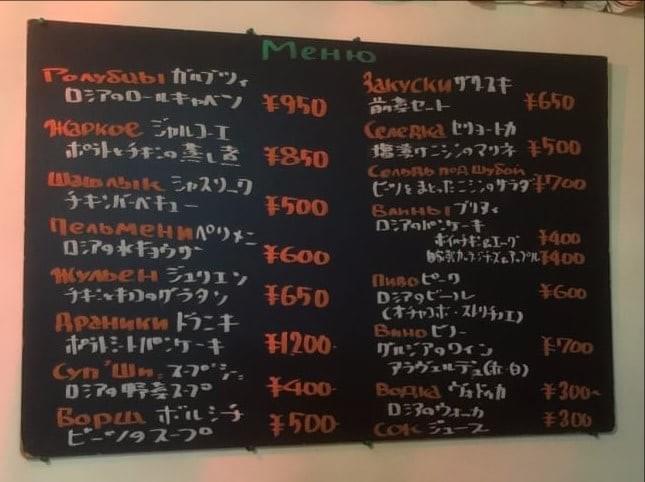 Меню
Голубцы ガルブツィ
ロシアのロールキャベツ ¥950
Жаркое ジャルコーエ
ポテトとチキンの蒸し煮 ¥850
Шашлык シャスリーク
チキンバーベキュー ¥500
Пельмени ペリメニ
ロシアの水キョウザ ¥600
Жульен ジュリエン
チキンとキノコのグラタン ¥650
Драники ドラニキ
ポテトパンケーキ ¥1200
Суп "Щи" スープシー
ロシアの野菜スープ ¥400
Борщ ボルシチ
ビーツのスープ ¥500
Закуски ザクースキ
前菜セット ¥650
Селедка セリョートカ
塩漬ケニシンのマリネ ¥500
Сельдь под шубой
ビーツをまとったニシンのサラダ ¥700
Блины ブリヌィ
ロシアのパンケーキ
¥400
¥400
Пиво ピーヴァ
ロシアのビール ¥600
Вино ビノー
グルジアのワイン ¥700
アラヴェルディ(赤・白)
Водка ヴォトカ ¥300~
ロシアのウォッカ
Сок ジュース ¥300